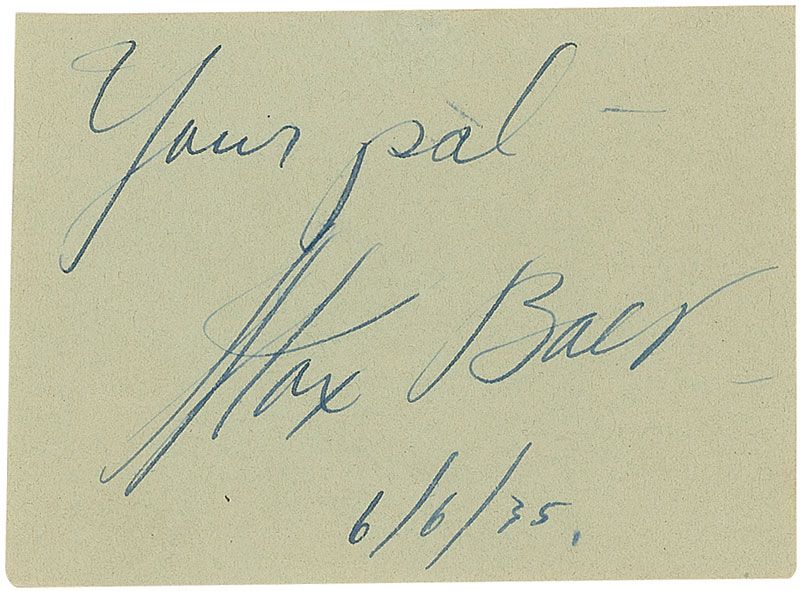 Your pal —
Max Baer —
6/6/35.